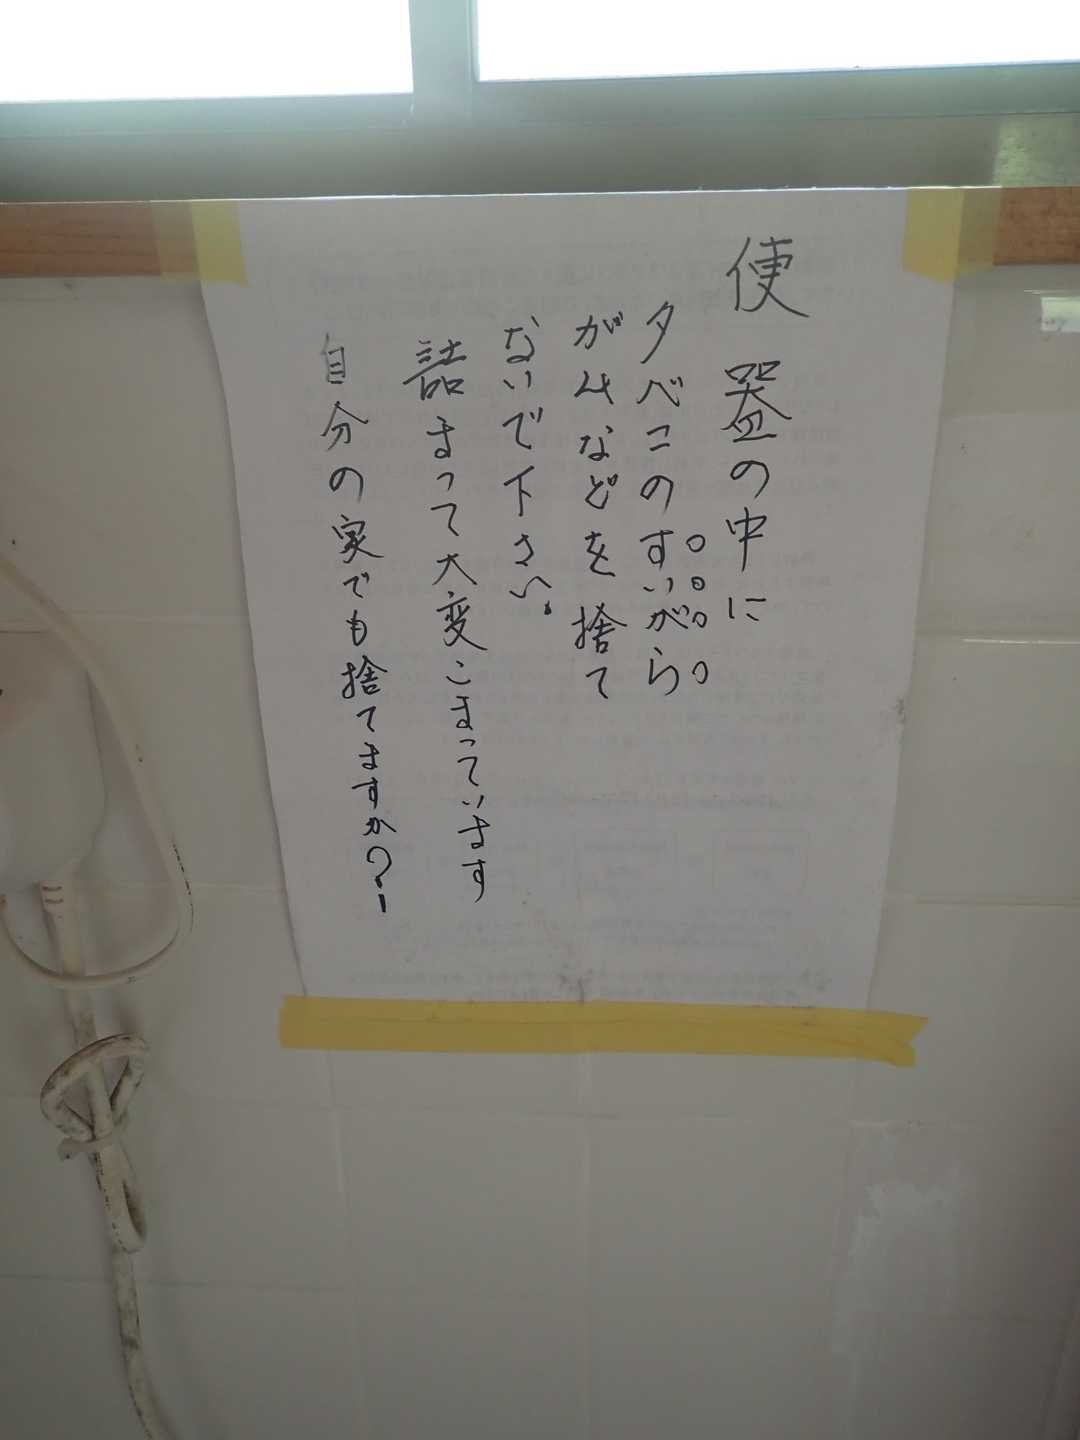 便器の中に
タベコのすいがら
がムなどを捨て
ないで下さい。
詰まって大変こまっています
自分の家でも捨てますか?!